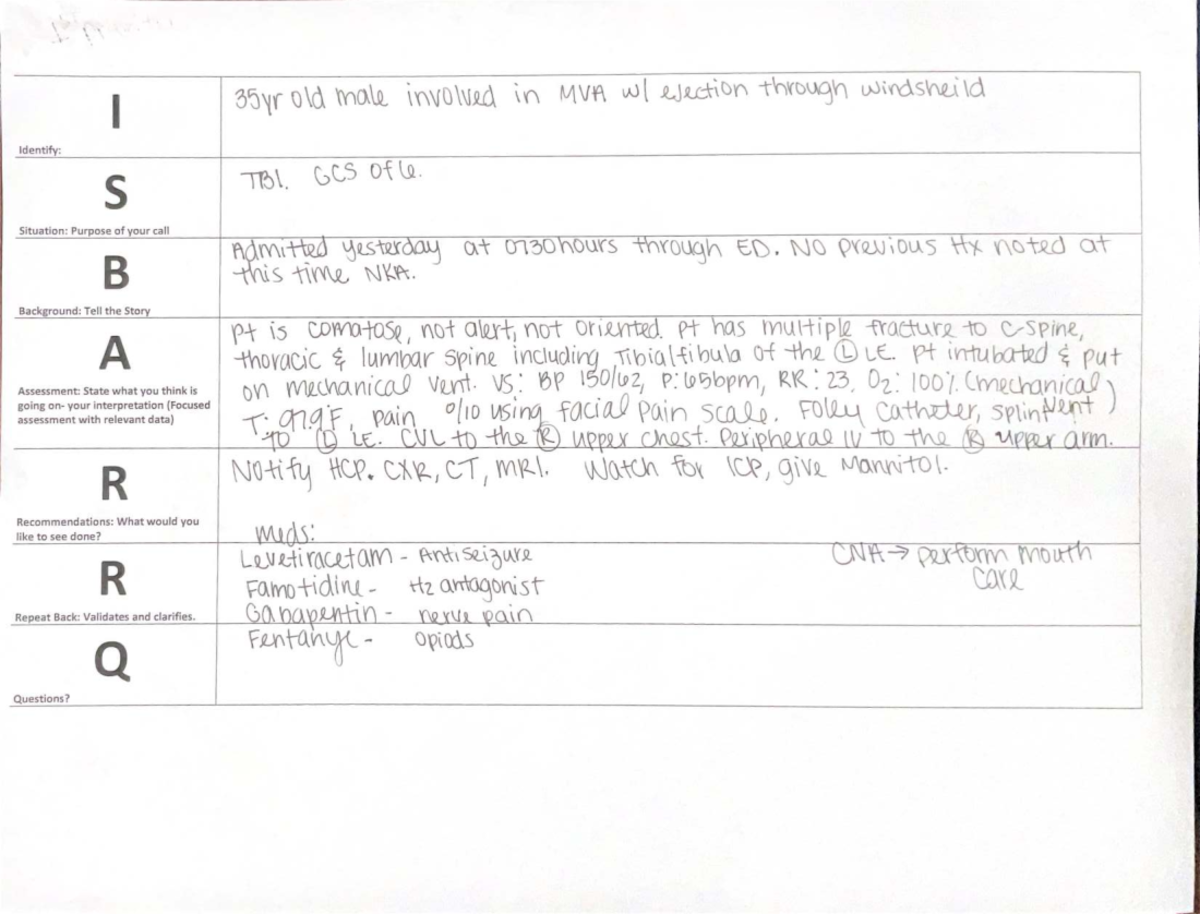 I
Identify:
35yr old male involved in MVA w/ ejection through windsheild
S
Situation: Purpose of your call
TBI. GCS of 6.
B
Background: Tell the Story
Admitted yesterday at 0730hours through ED. No previous Hx noted at
this time NKA.
A
Assessment: State what you think is
going on- your interpretation (Focused
assessment with relevant data)
Pt is comatose, not alert, not oriented. Pt has multiple fracture to C-spine,
thoracic & lumbar spine including Tibialfibula of the Ⓛ LE. Pt intubated & put
on mechanical vent. VS: BP 150/62, P: 65bpm, RR: 23, O2: 100% (mechanical
vent)
T: 97.9°F, pain 0/10 using facial pain scale. Foley Catheter, splint
to Ⓛ LE. CVL to the Ⓡ upper chest. Peripheral IV to the Ⓡ upper arm.
R
Recommendations: What would you
like to see done?
Notify HCP. CXR, CT, MRI. Watch for ICP, give Mannitol.
meds:
R
Repeat Back: Validates and clarifies.
Levetiracetam - Antiseizure
Famotidine - H2 antagonist
Gabapentin - nerve pain
CNA → perform mouth
care
Q
Questions?
Fentanyl - opiods